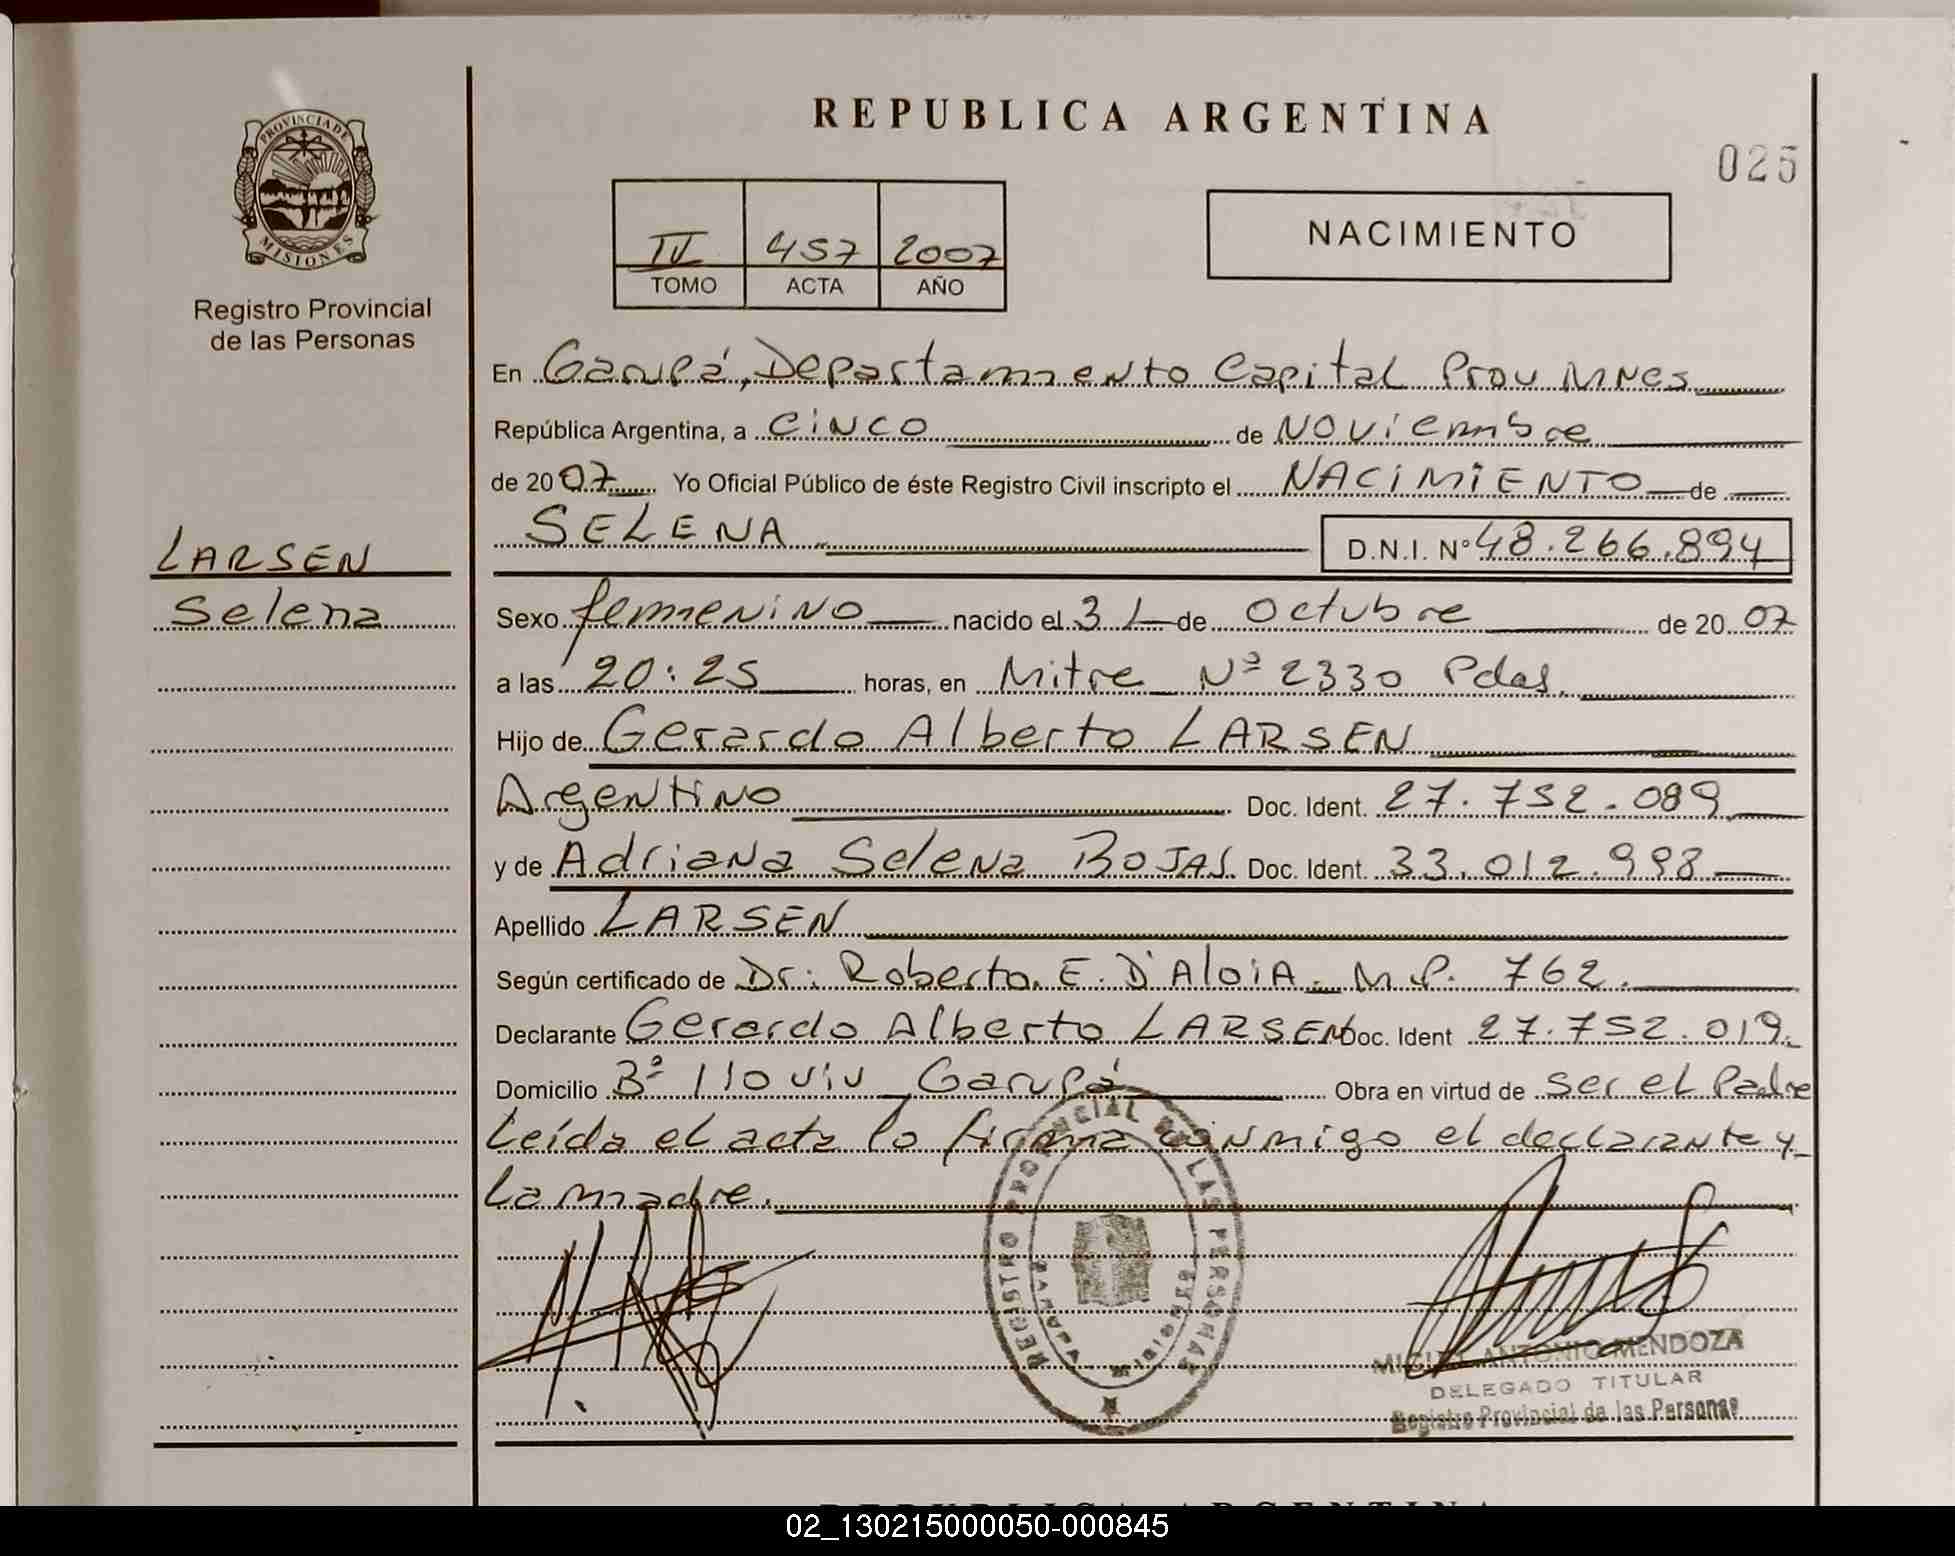 REPUBLICA ARGENTINA
025
PROVINCIA DE
MISIONES
Registro Provincial
de las Personas
IV 457 2007
TOMO ACTA AÑO
NACIMIENTO
En Garupá, Departamento Capital Prov Mnes
República Argentina, a cinco de Noviembre
de 2007 Yo Oficial Público de éste Registro Civil inscripto el NACIMIENTO de
SELENA D.N.I. Nº 48.266.894
LARSEN
Selena
Sexo femenino nacido el 31 de Octubre de 2007
a las 20:25 horas, en Mitre Nº 2330 Pdas.
Hijo de Gerardo Alberto LARSEN
Argentino Doc. Ident. 27.752.089
y de Adriana Selena ROJAS Doc. Ident. 33.012.998
Apellido LARSEN
Según certificado de Dr: Roberto. E. D'AloiA. M.P. 762.
Declarante Gerardo Alberto LARSEN Doc. Ident 27.752.019.
Domicilio Bº 110 viv Garupá Obra en virtud de ser el Padre
Leída el acta lo firma conmigo el declarante y
la madre.
REGISTRO PROVINCIAL DE LAS PERSONAS
MIGUEL ANTONIO MENDOZA
DELEGADO TITULAR
Registro Provincial de las Personas
REPUBLICA ARGENTINA
02_130215000050-000845